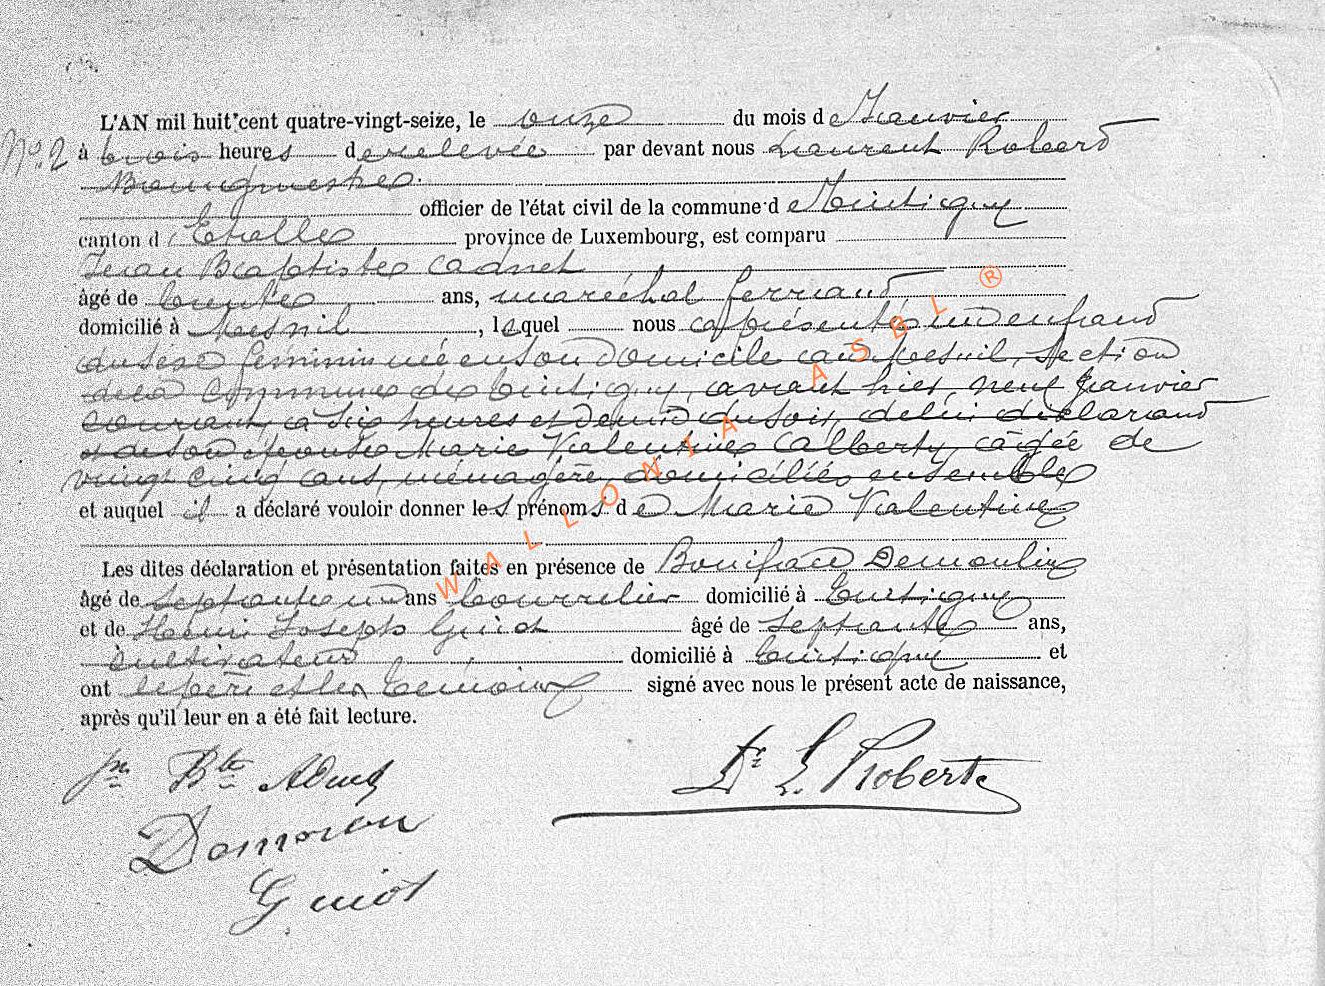 L'AN mil huit cent quatre-vingt-seize, le onze du mois de Janvier
No. 2 à trois heures de relevée par devant nous Laurent Robert
Bourgmestre
officier de l'état civil de la commune de Tintigny
canton d'Etalle province de Luxembourg, est comparu
Jean Baptiste Adnet
âgé de trente ans, maréchal ferrant
domicilié à Mesnil, lequel nous a présenté un enfant
du sexe féminin née en son domicile au Mesnil, section
de la commune de Tintigny, avant hier, neuf janvier
courant, à six heures et demie du soir, de lui déclarant
et de son épouse Marie Valentine Alberty, âgée de
vingt cinq ans, ménagère domiciliés ensemble
et auquel il a déclaré vouloir donner les prénoms de Marie Valentine
Les dites déclaration et présentation faites en présence de Boniface
âgé de ans bourrelier domicilié à Tintigny
et de Henri Joseph Guiot âgé de septante ans,
cultivateur domicilié à Tintigny et
ont le père et les témoins signé avec nous le présent acte de naissance,
après qu'il leur en a été fait lecture.
Jn Bte Adnet Dr L. Robert
Guiot
WALLONIA ASBL ®